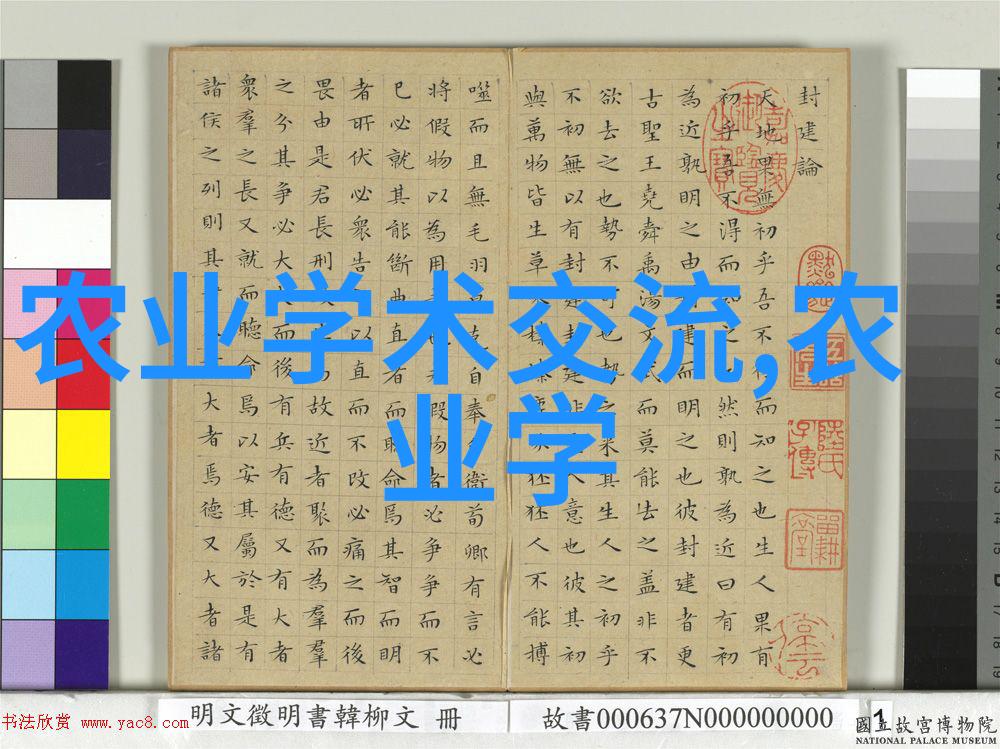 封建論
天地果無初乎吾不得而知之也生人果有
初乎吾不得而知之也然則孰為近曰有初
為近孰明之由封建而明之也彼封建者更
古聖王堯舜禹湯文武而莫能去之蓋非不
欲去之也勢不可也勢之來其生人之初乎
不初無以有封建封建非聖人意也彼其初
與萬物皆生草木榛榛鹿豕狉狉人不能搏
噬而且無毛羽莫克自奉自衛荀卿有言必
將假物以為用者也夫假物者必爭爭而不
已必就其能斷曲直者而聽命焉其智而明
者所伏必眾告之以直而不改必痛之而後
畏由是君長刑政生焉故近者聚而為羣
之分其爭必大大而後有兵有德又有大者
眾羣之長又就而聽命焉以安其屬於是有
諸侯之列則其爭又有大者焉德又大者諸
农业学术交流,农
业学
明文徵明書韓柳文 冊
故書000637N000000000
1
書法欣赏 www.yac8.com
國立故宮博物院
NATIONAL PALACE MUSEUM